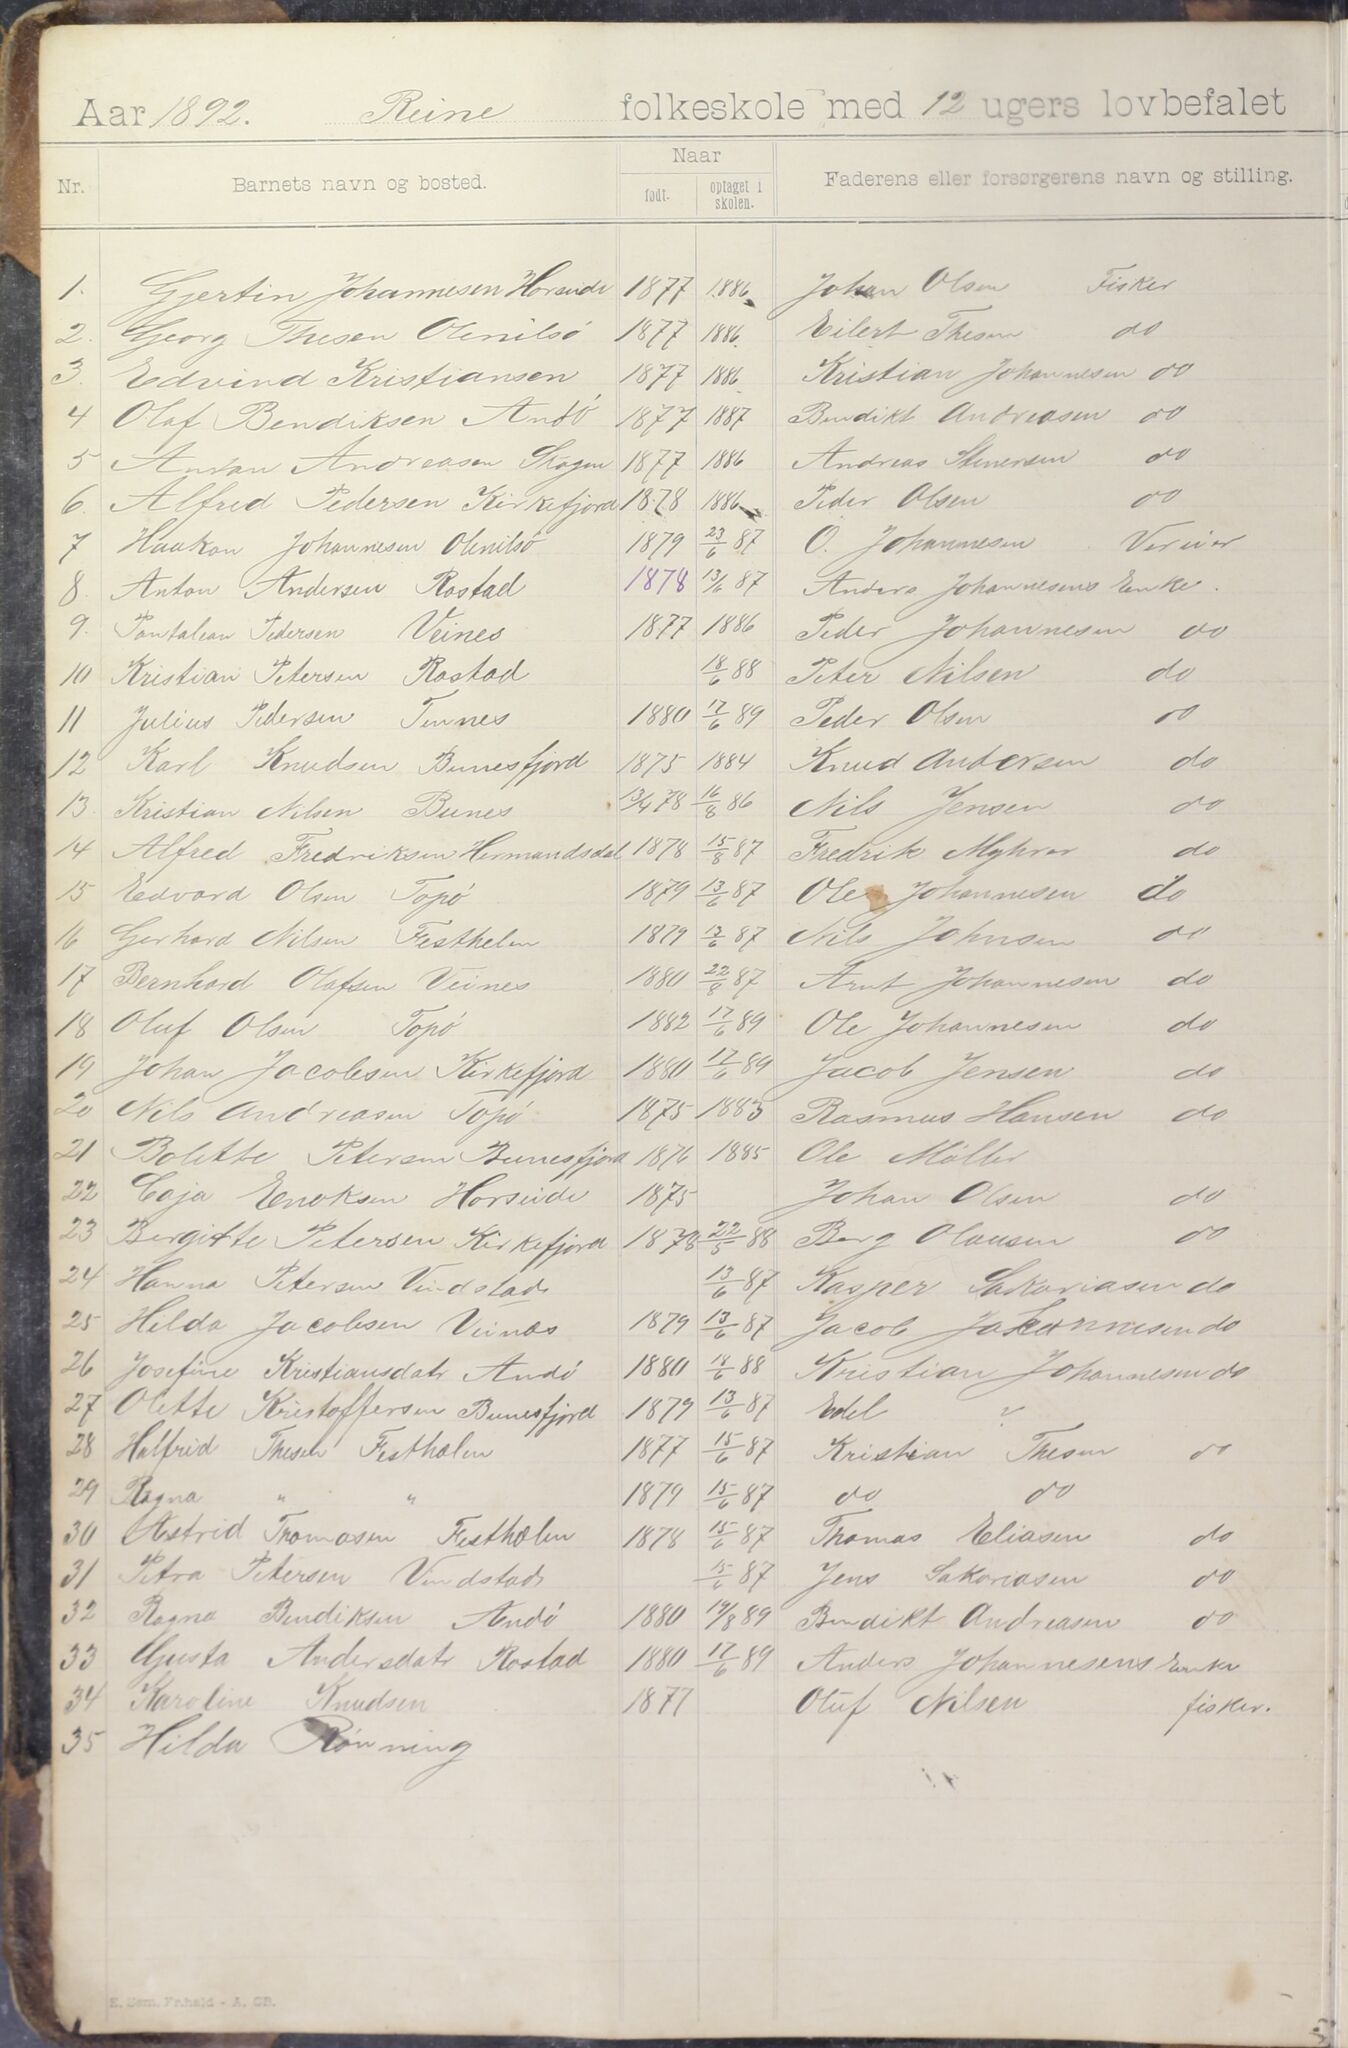 Aar 1892. Reine folkeskole med 12 ugers lovbefalet
Nr. Barnets navn og bosted. Naar født. optaget i skolen. Faderens eller forsørgerens navn og stilling.
1. Gjertin Johannesen Horseide 1877 1886 Johan Olsen Fisker
2. Georg Thesen Olenilsö 1877 1886. Eilert Thesen do
3. Edvind Kristiansen 1877 1886 Kristian Johannesen do
4 Olaf Bendiksen Andö 1877 1887 Bendikt Andreasen do
5 Anton Andreasen Skogen 1877 1886 Andreas Stenersen do
6. Alfred Pedersen Kirkefjord 1878 1886 Peder Olsen do
7 Haakon Johannesen Olenilsö 1879 23/6 87 O. Johannesen
8. Anton Andersen Rostad 1878 13/6 87 Anders Johannesens Enke.
9. Pantalean Pedersen Veines 1877 1886 Peder Johannesen do
10 Kristian Petersen Rostad 18/6 88 Peter Nilsen do
11 Julius Pedersen Tennes 1880 17/6 89 Peder Olsen do
12 Karl Knudsen Bunesfjord 1875 1884 Knud Andersen do
13. Kristian Nilsen Bunes 13/4 78 16/8 86 Nils Jensen do
14 Alfred Fredriksen Hermandsdal 1878 15/8 87 Fredrik Myhrer do
15 Edvard Olsen Topö 1879 13/6 87 Ole Johannesen do
16 Gerhard Nilsen Festhelen 1879 13/6 87 Nils Johnsen do
17 Bernhard Olafsen Veines 1880 22/8 87 Arnt Johannesen do
18 Oluf Olsen Topö 1882 17/6 89 Ole Johannesen do
19 Johan Jacobsen Kirkefjord 1880 17/6 89 Jacob Jensen do
20 Nils Andreasen Topö 1875 1883 Rasmus Hansen do
21 Bolette Petersen Bunesfjord 1876 1885 Ole Möller
22 Caja Enoksen Horseide 1875 Johan Olsen do
23 Bergitte Petersen Kirkefjord 1878 22/5 88 Berg Olausen do
24 Hanna Petersen Vindstad 13/6 87 Kasper Sakariasen do
25 Hilda Jacobsen Veines 1879 13/6 87 Jacob Johannesen do
26 Josefine Kristiansdatr Andö 1880 18/6 88 Kristian Johannesen do
27 Olette Kristoffersen Bunesfjord 1879 13/6 87 Edel ?
28 Halfrid Thesen Festhælen 1877 15/6 87 Kristian Thesen do
29 Ragna " " 1879 15/6 87 do do
30 Astrid Thomasen Festhælen 1878 15/6 87 Thomas Eliasen do
31 Petra Petersen Vindstad 15/6 87 Jens Sakariasen do
32 Ragna Bendiksen Andö 1880 19/8 89 Bendikt Andreasen do
33 Gusta Andersdatr Rostad 1880 17/6 89 Anders Johannesens Enke
34 Karoline Knudsen 1877 Oluf Nilsen fisker.
35 Hilda Rönning